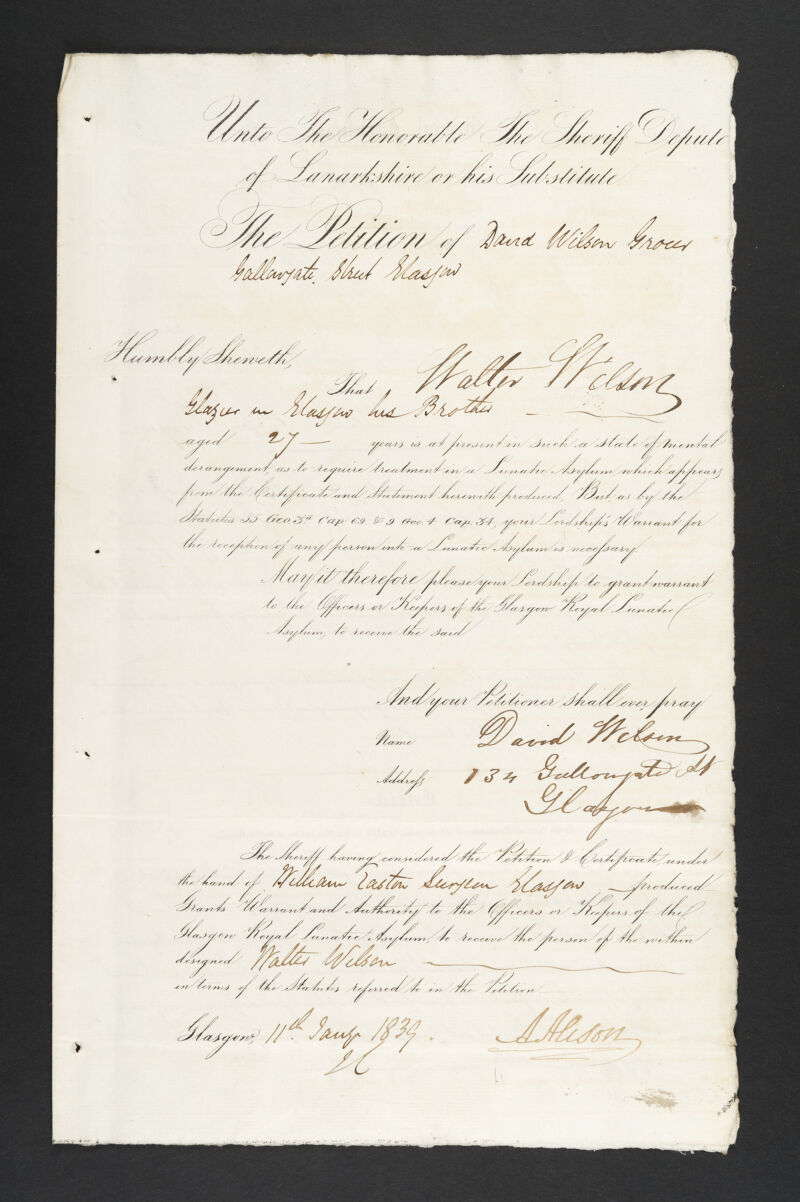 Unto The Honorable The Sheriff Depute
of Lanarkshire or his Substitute
The Petition of David Wilson Grocer
Gallowgate Street Glasgow
Humbly Sheweth,
That Walter Wilson
Glazier in Glasgow his Brother
aged 27 years is at present in such a state of mental
derangement, as to require treatment in a Lunatic Asylum which appears
from the Certificate and Statement herewith produced, But as by the
Statutes 55 Geo. 3d Cap. 69 & 9 Geo. 4 Cap. 34, your Lordship's Warrant for
the reception of any person into a Lunatic Asylum is necessary.
May it therefore please your Lordship to grant warrant
to the Officers or Keepers of the Glasgow Royal Lunatic
Asylum, to receive the said
And your Petitioner shall ever pray
Name David Wilson
Address 134 Gallowgate St
Glasgow
The Sheriff having considered the Petition & Certificate, under
the hand of William Easton Surgeon Glasgow produced
Grants Warrant and Authority to the Officers or Keepers of the
Glasgow Royal Lunatic Asylum, to receive the person of the within
designed Walter Wilson
in terms of the Statutes referred to in the Petition
Glasgow, 11th Jany 1839. A Alison